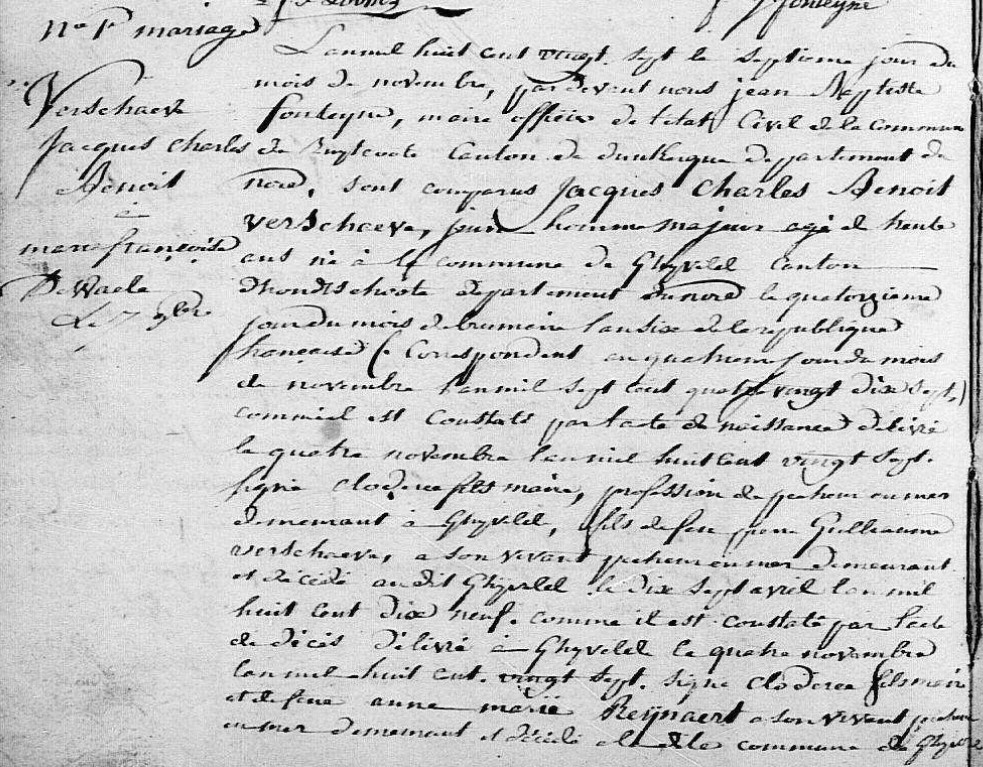 fonteyne
N.e 1er mariage
Verschaeve
Jacques charles
Benoit
à
marie françoise
DeWaele
Le 7 9bre
L'an mil huit cent vingt sept le septieme jour du
mois de novembre, pardevent nous jean Baptiste
fonteyne, maire officier de l'etat Civil de la commune
de Canton de dunkerque departement du
nord, sont comparus Jacques Charles Benoit
verschaeve, jeune homme majeur agé de trente
ans né à la commune de Ghyvelde Canton
d'hondtschoote departement du nord le quatorzieme
jour du mois de brumaire l'an six de la republique
française (Correspondent au quatrieme jour du mois
de novembre l'an mil sept cent quatre vingt dix sept)
comme il est Constaté par l'acte de naissance delivré
le quatre novembre l'an mil huit Cent vingt sept.
signé fils maire, profession de pecheur en mer
demeurant à Ghyvelde, fils de feu pierre Gulliaume
verschaeve, a son vivant pecheur en mer demeurant
et décédé audit Ghyvelde le dix sept avril l'an mil
huit cent dix neuf. comme il est constaté par l'acte
de décès délivré à Ghyvelde le quatre novembre
l'an mil huit cent vingt sept. signé fils maire
et de feue anne marie Reijnaert a son vivant
en mer demeurant et décédé a la dite commune de